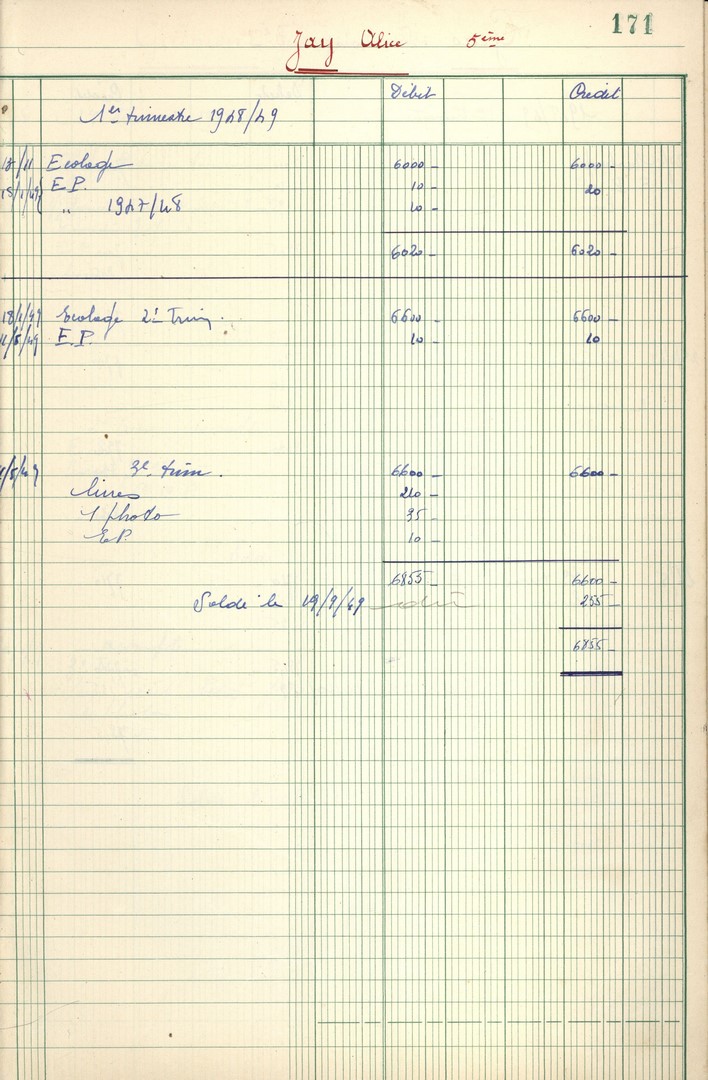 171
Jay Alice 5ème
Débit Crédit
1er trimestre 1948/49
Ecolage 6000 - 6000 -
15/1/49 E.P. 10 - 20
" 1947/48 10 -
6020 - 6020 -
18/1/49 Ecolage 2è Trim. 6600 - 6600 -
E.P. 10 - 10
3e trim. 6600 - 6600 -
livres 210 -
1 photo 35 -
E.P. 10 -
6855 - 6600 -
Solde le 19/9/49 255 -
6855 -